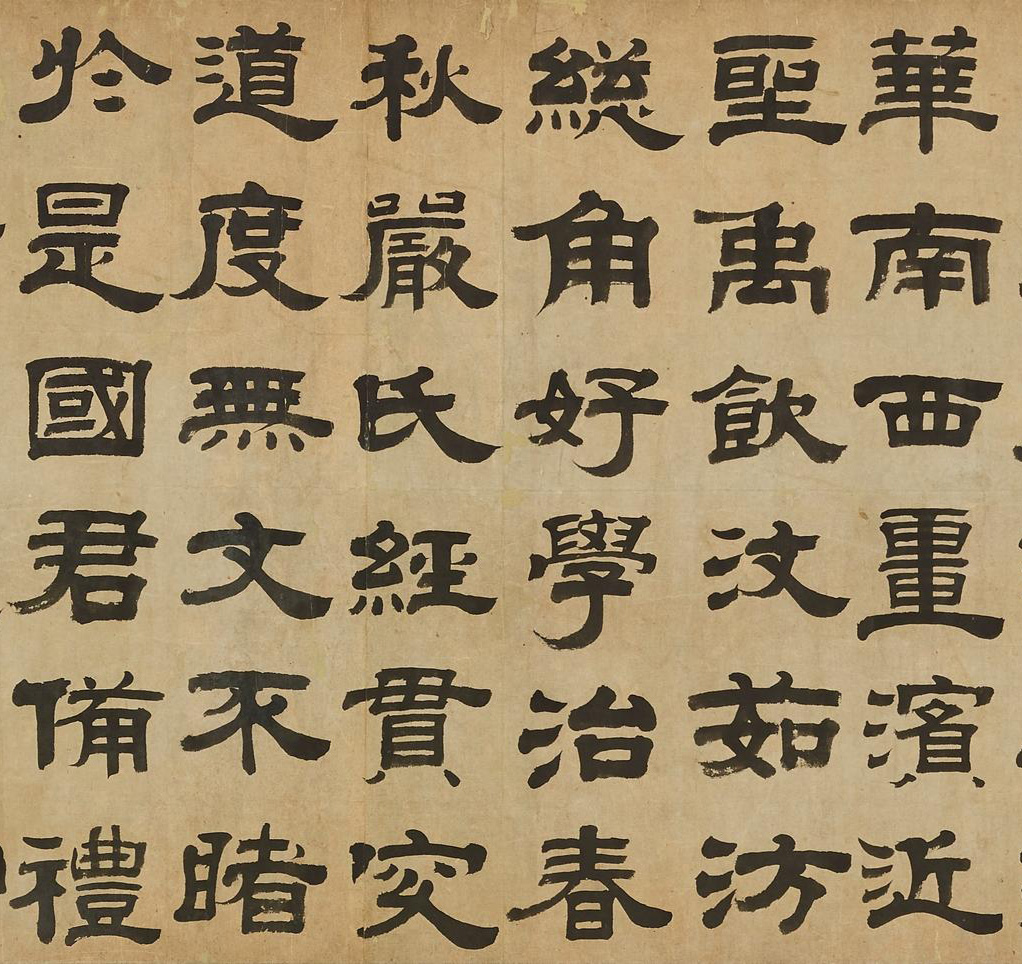 華南西畺濱近
聖禹飲汶茹汸
緫角好學治春
秋嚴氏經貫究
道度無文不睹
於是國君備禮